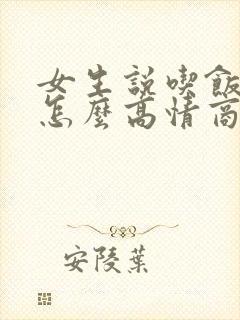 女生説喫飯
怎麼高情商
安陵葉